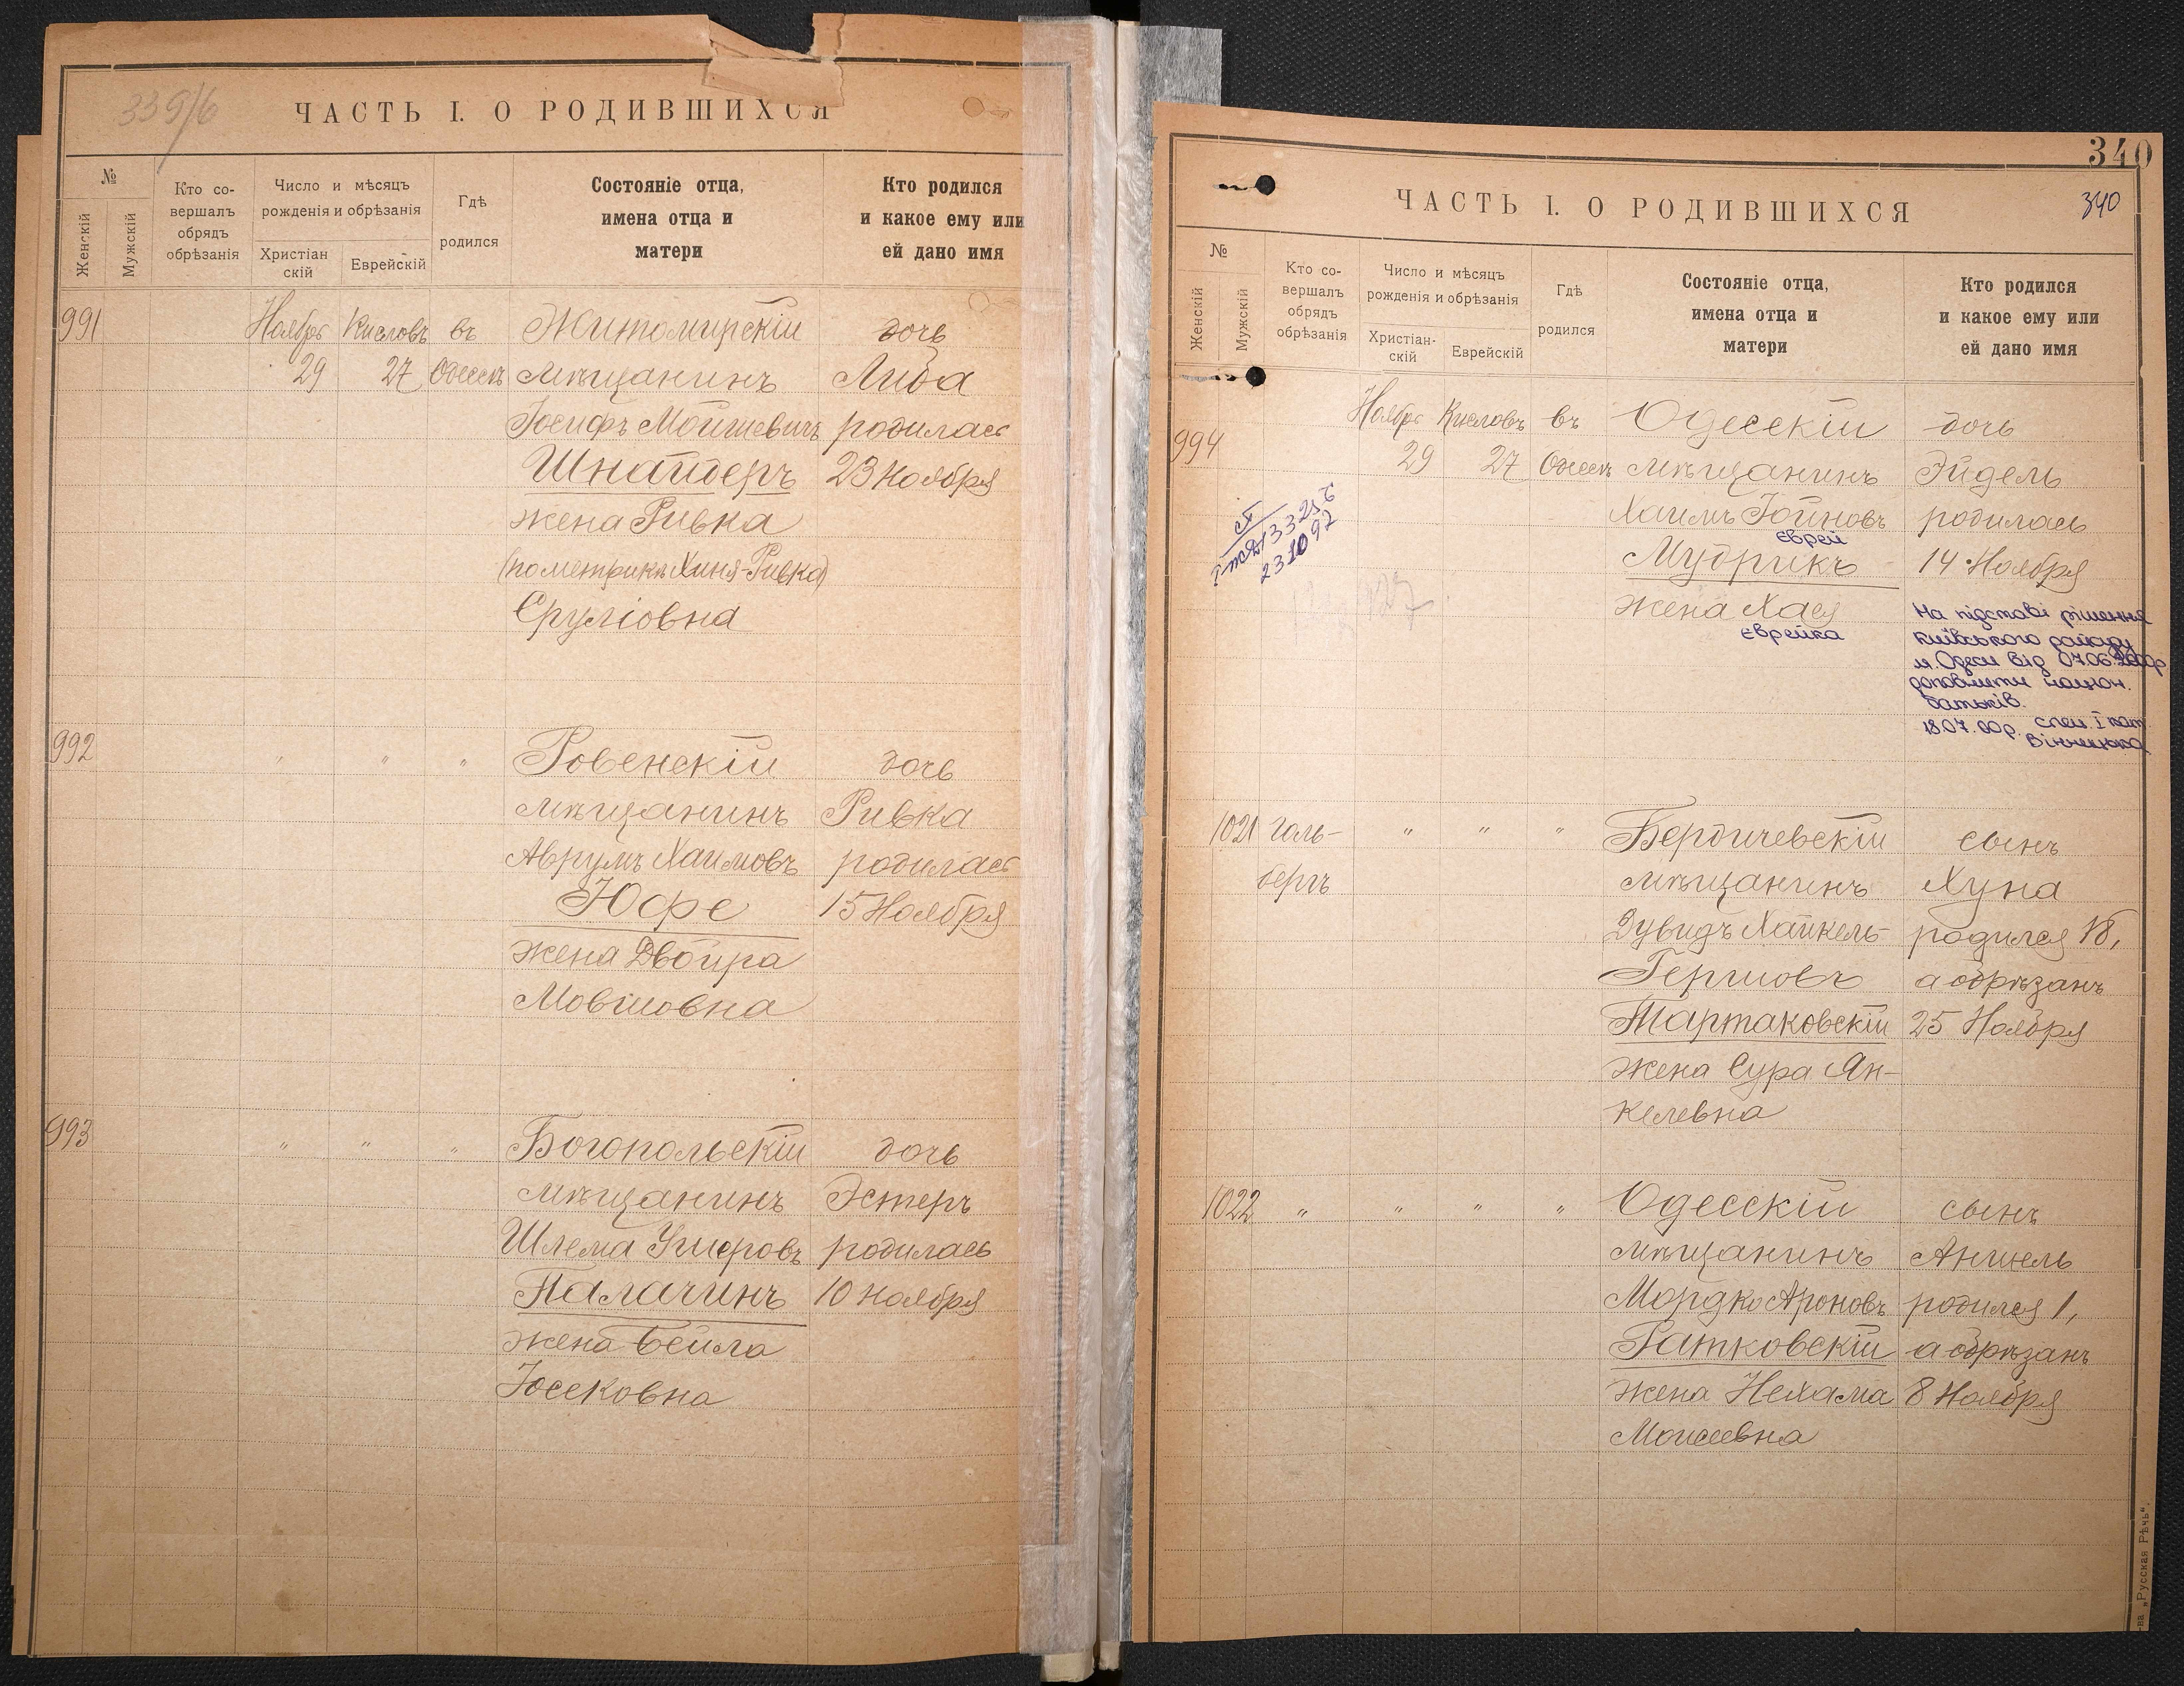 339/б
ЧАСТЬ I. О РОДИВШИХСЯ
№
Женскій
Мужскій
Кто со-
вершалъ
обрядъ
обрѣзанія
Число и мѣсяцъ
рожденія и обрѣзанія
Христіан
скій
Еврейскій
Гдѣ
родился
Состояніе отца,
имена отца и
матери
Кто родился
и какое ему или
ей дано имя
991 Ноябрь Кислевъ въ Житомирскій дочь
29 27 Одессѣ мѣщанинъ Либа
Іосифъ Мошкевичъ родилась
Шнайдеръ 23 Ноября
жена Ривка
(по метрикѣ Хиня-Ривка)
Сруліовна
992 " " " Ровенскій дочь
мѣщанинъ Ривка
Аврумъ Хаимовъ родилась
Юфе 15 Ноября
жена Двойра
Мовшовна
993 " " " Богопольскій дочь
мѣщанинъ Эстеръ
Шлема Ушеровъ родилась
Палачинъ 10 Ноября
жена Бейла
Юсековна
340
340
ЧАСТЬ I. О РОДИВШИХСЯ
№
Женскій
Мужскій
Кто со-
вершалъ
обрядъ
обрѣзанія
Число и мѣсяцъ
рожденія и обрѣзанія
Христіан-
скій
Еврейскій
Гдѣ
родился
Состояніе отца,
имена отца и
матери
Кто родился
и какое ему или
ей дано имя
994 Ноябрь Кислевъ въ Одесскій дочь
29 27 Одессѣ мѣщанинъ Эйдель
Хаимъ Юйновъ родилась
еврей
Мудрикъ 14 Ноября
жена Хася
єврейка
На підставі рішення
Київського райсуду
м. Одеси від 07.06.2000р
доповнити націон.
батьків.
18.07.00р. спец. І кат.
Вінницька
1021 Галь- " " " Бердичевскій сынъ
бергъ мѣщанинъ Хуна
Дувидъ Хайкель- родился 18,
Гершовъ а обрѣзанъ
Тартаковскій 25 Ноября
жена Сура Ян-
келевна
1022 " " " " Одесскій сынъ
мѣщанинъ Аншель
Мордко Ароновъ родился 1,
Ратковскій а обрѣзанъ
жена Нехама 8 Ноября
Моисеевна
-ва „Русская Рѣчь".